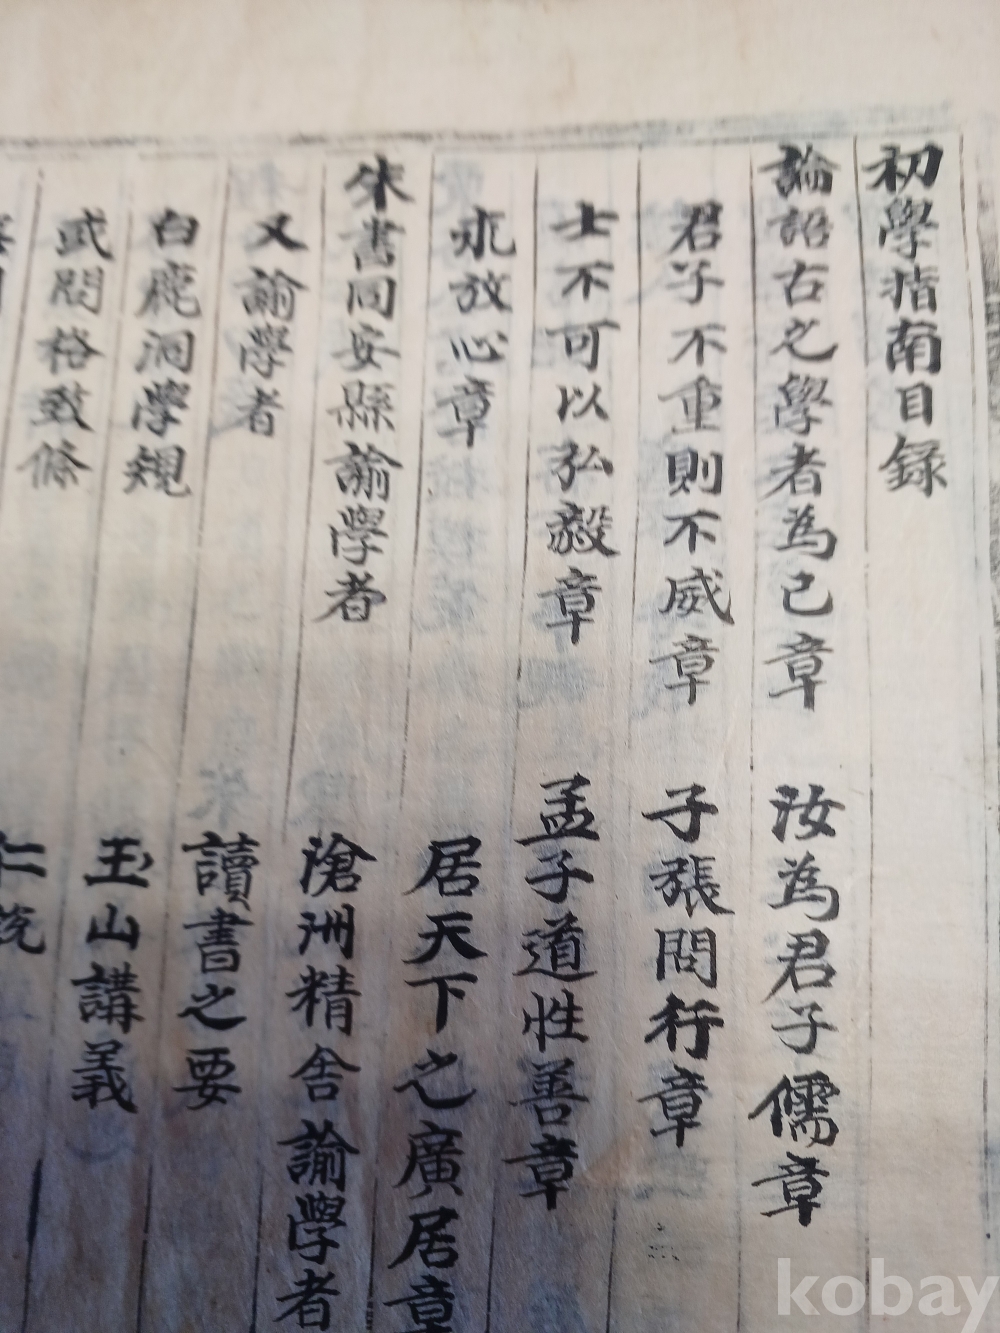 初學指南目錄
論語古之學者為己章 汝為君子儒章
君子不重則不威章 子張問行章
士不可以弘毅章 孟子道性善章
求放心章 居天下之廣居章
朱書同安縣諭學者 滄洲精舍諭學者
又諭學者 讀書之要
白鹿洞學規 玉山講義
或問格致條 仁說
kobay